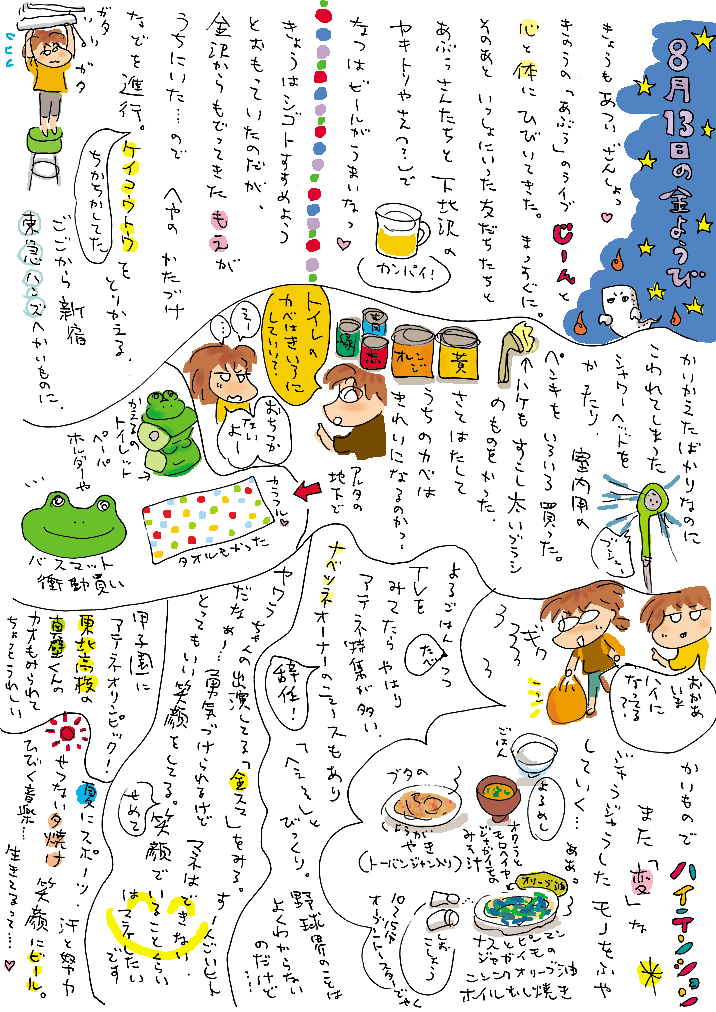 8月13日の金ようび
きょうもあついざんしょっ♥
きのうの「あぶぅ」のライブ じーんと
心と体に ひびいてきた。まっすぐに。
そのあと いっしょにいった友だちたちと
あぶぅさんたちと 下北沢の
ヤキトリやさんで
なつはビールがうまいなっ♥
カンパイ!
きょうはシゴトすすめよう
とおもっていたのだが、
金沢からもどってきた もえが
うちにいた…ので へやの かたづけ
などを進行。ケイコウトウを とりかえる。
ちかちかしてた
ガタ
ガタ
ごごから 新宿
東急ハンズへかいものに。
かりかえたばかりなのに
こわれてしまった
シャワーヘッドを
かったり、室内用の
ペンキを いろいろ 買った。
↑ハケも すこし太いブラシ
のものをかった。
さてはたして
うちのカベは
きれいになるのか?
黄
オレンジ
あか
青
緑
トイレの
カベはきいろに
していい?
えー
…
おちつか
ない
よー
かえるの
トイレット
ペーパ
ホルダーや
バスマット
衝動買い
アルタの
地下で
カラフル♥
タオルもかった
おかあ
いま
ハイに
なってる?
ギク
かいもので ハイテンション
また「変」な
ジャラジャラした モノをふや
していく… ああ。
よるごはん たべつつ
TVを
みてたら やはり
アテネ特集が 多い。
よるめし
ごはん
ブタの
しょうがやき
(トーバンジャン入り)
オクラと
モロヘイヤ、
ジャガイモの
みそ汁
オリーブ油
ナスとピーマン
とジャガイモの
ニンニクオリーブ油
ホイルむし焼き
しお
こしょう
10~15分
オーブントースターでやく
ナベツネオーナーのニュースもあり
辞任!
「へぇ~」と
びっくり。野球界のことは
よくわからない
のだけど…
ヤワラちゃんの出演してる「金スマ」をみる。すーんごいとん
だなぁー!勇気づけられるけど マネはできない。
とってもいい笑顔をしてる。笑顔で いることくらい
せめて
はマネしたい
です
甲子園に
アテネオリンピック!
東北高校の
真壁くんの
カオもみられて
ちょっとうれしい
夏にスポーツ・汗と努力
せつない夕焼け 笑顔にビール。
ひびく音楽… 生きてるって…♥